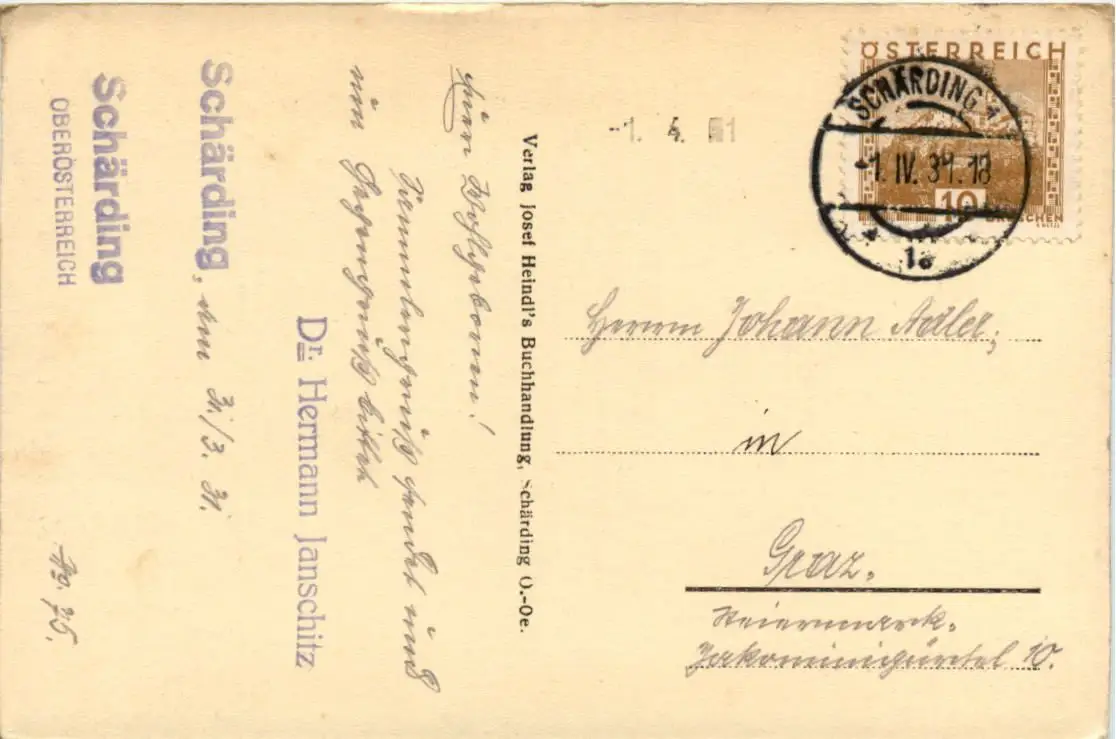 Schärding
OBERÖSTERREICH
Schärding, am 31./3. 31.
Euer Wohlgeboren!
Sammlungruß sendet und
um Gegengruß bittet
Dr. Hermann Janschitz
No. 75.
Verlag Josef Heindl's Buchhandlung, Schärding O.-Oe.
-1. 4. 31
ÖSTERREICH
10
GROSCHEN
SCHÄRDING 1
-1. IV. 31. 18
1a
Herrn Johann Adler,
in
Graz.
Steiermark.
Jakominigürtel 10.